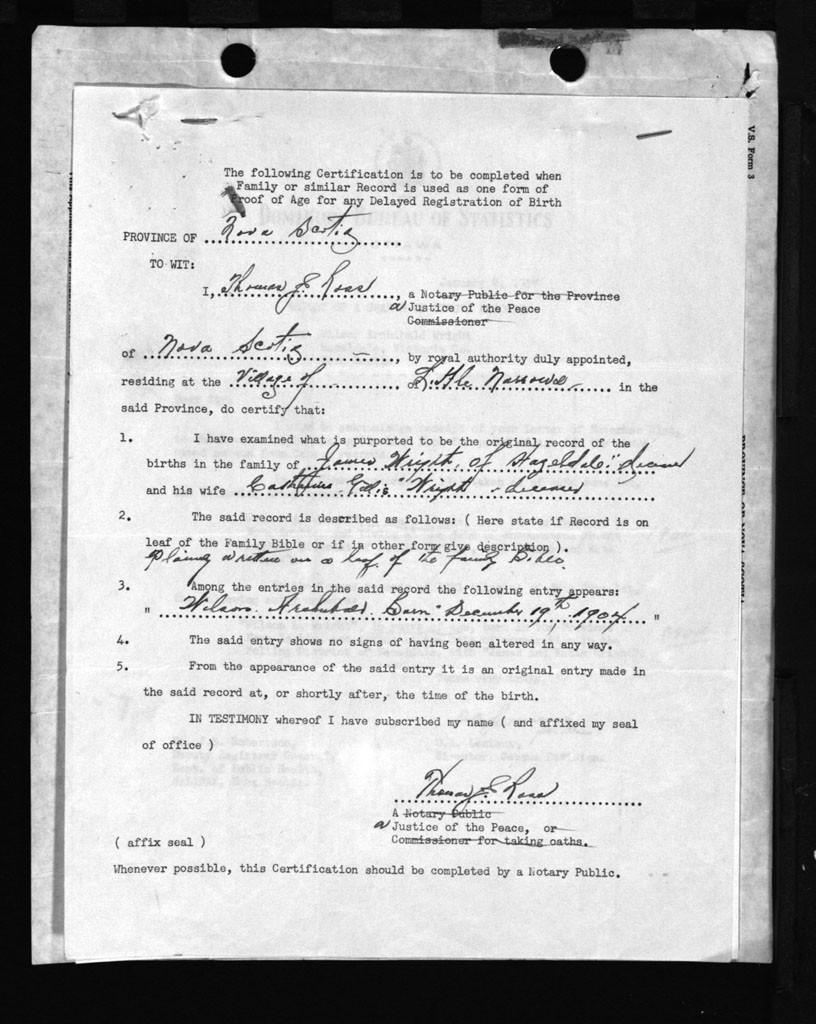 V.S. Form 3
The following Certification is to be completed when
Family or similar Record is used as one form of
Proof of Age for any Delayed Registration of Birth
DOMINION BUREAU OF STATISTICS
PROVINCE OF Nova Scotia
TO WIT:
I, Thomas J. E. Ross, a Notary Public for the Province
a Justice of the Peace
Commissioner
of Nova Scotia, by royal authority duly appointed,
residing at the Village of of Little Narrows in the
said Province, do certify that:
1. I have examined what is purported to be the original record of the
births in the family of James Wright, of Hazeldale, deceased
and his wife Catherine Wright - deceased
2. The said record is described as follows: ( Here state if Record is on
leaf of the Family Bible or if in other form give description ).
Plainly written on a leaf of the family Bible.
3. Among the entries in the said record the following entry appears:
" Wilson Archibald. Born December 19th 1904 "
4. The said entry shows no signs of having been altered in any way.
5. From the appearance of the said entry it is an original entry made in
the said record at, or shortly after, the time of the birth.
IN TESTIMONY whereof I have subscribed my name ( and affixed my seal
of office )
Thomas J. E. Ross
A Notary Public
a Justice of the Peace, or
( affix seal ) Commissioner for taking oaths.
Whenever possible, this Certification should be completed by a Notary Public.